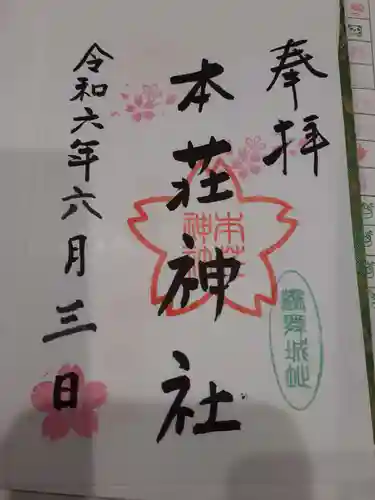 奉拝
本荘神社
令和六年六月三日
本荘神社
鶴舞城址